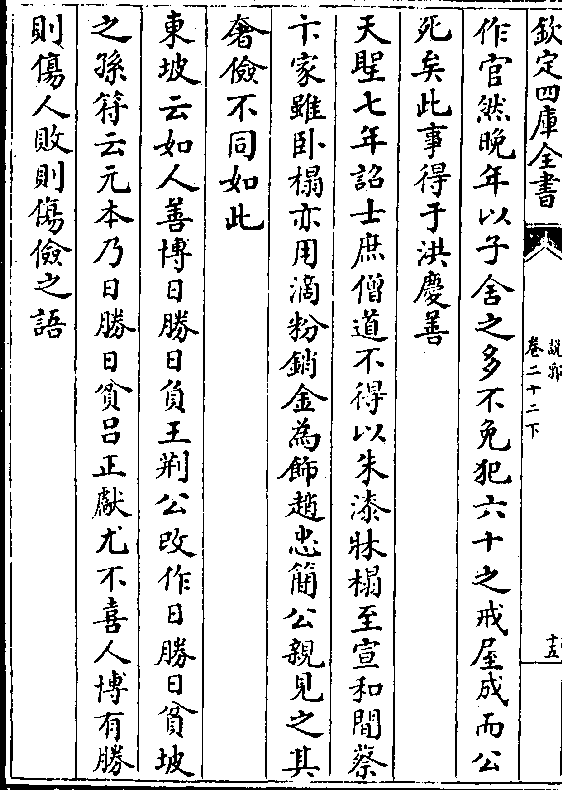 欽定四庫全書
說郛
卷二十二下
十五
作官然晚年以子舍之多不免犯六十之戒屋成而公
死矣此事得于洪慶善
天聖七年詔士庶僧道不得以朱漆牀榻至宣和間蔡
卞家雖卧榻亦用滴粉銷金為飾趙忠簡公親見之其
奢儉不同如此
東坡云如人善博日勝日負王荆公改作日勝日貧坡
之孫符云元本乃日勝日貧吕正獻尤不喜人博有勝
則傷人敗則傷儉之語